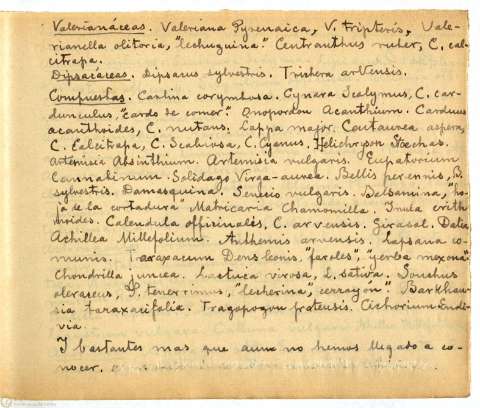 Valerianáceas. Valeriana Pyrenaica, V. Tripteris, Vale-
rianella olitoria, "lechuguina". Centranthus ruber, C. cal-
citrapa.
Dipsacáceas. Dipsacus sylvestris. Trichera arvensis.
Compuestas. Carlina corymbosa. Cynara Scolymus, C. car-
dunculus, "cardo de comer". Onopordon Acanthium. Carduus
acanthoides, C. nutans. Lappa major. Centaurea aspera,
C. Calcitrapa, C. Scabiosa, C. Cyanus, Helichryson Stoechas.
Artemisia Absinthium. Artemisia vulgaris. Eupatorium
Cannabinum. Solidago Virga-aurea. Bellis perennis, B.
sylvestris. Damasquina. Senecio vulgaris. Balsamina, "ho-
ja de la cortadura" Matricaria Chamomilla. Inula crith-
moides. Calendula officinales, C. arvensis. Girasol. Dalia
Achillea Millefolium. Anthemis arvensis. Lapsana co-
munis. Taraxacum Dens-leonis, "faroles", "yerba mexona".
Chondrilla juncea. Lactuca virosa, L. sativa. Sonchus
oleraceus, S. tenerrimus, "lecherina", cerrayón". Barkhau-
sia taraxacifolia. Tragopogon pratensis. Cichorium Endi-
via.
Y bastantes mas que aun no hemos llegado a co-
nocer.